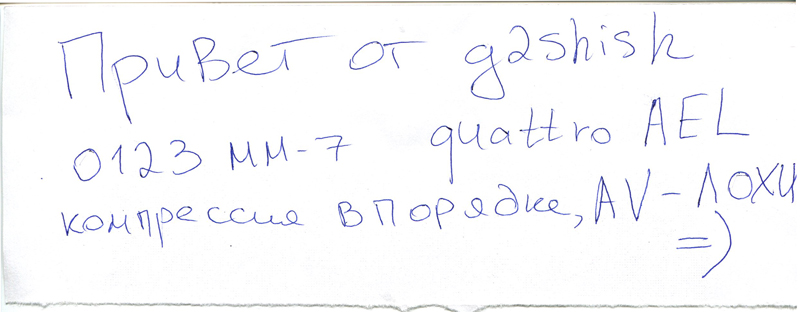 Привет от g2shisk
0123 мм-7 quattro AEL
компрессия в порядке, AV-ЛОХИ
=)